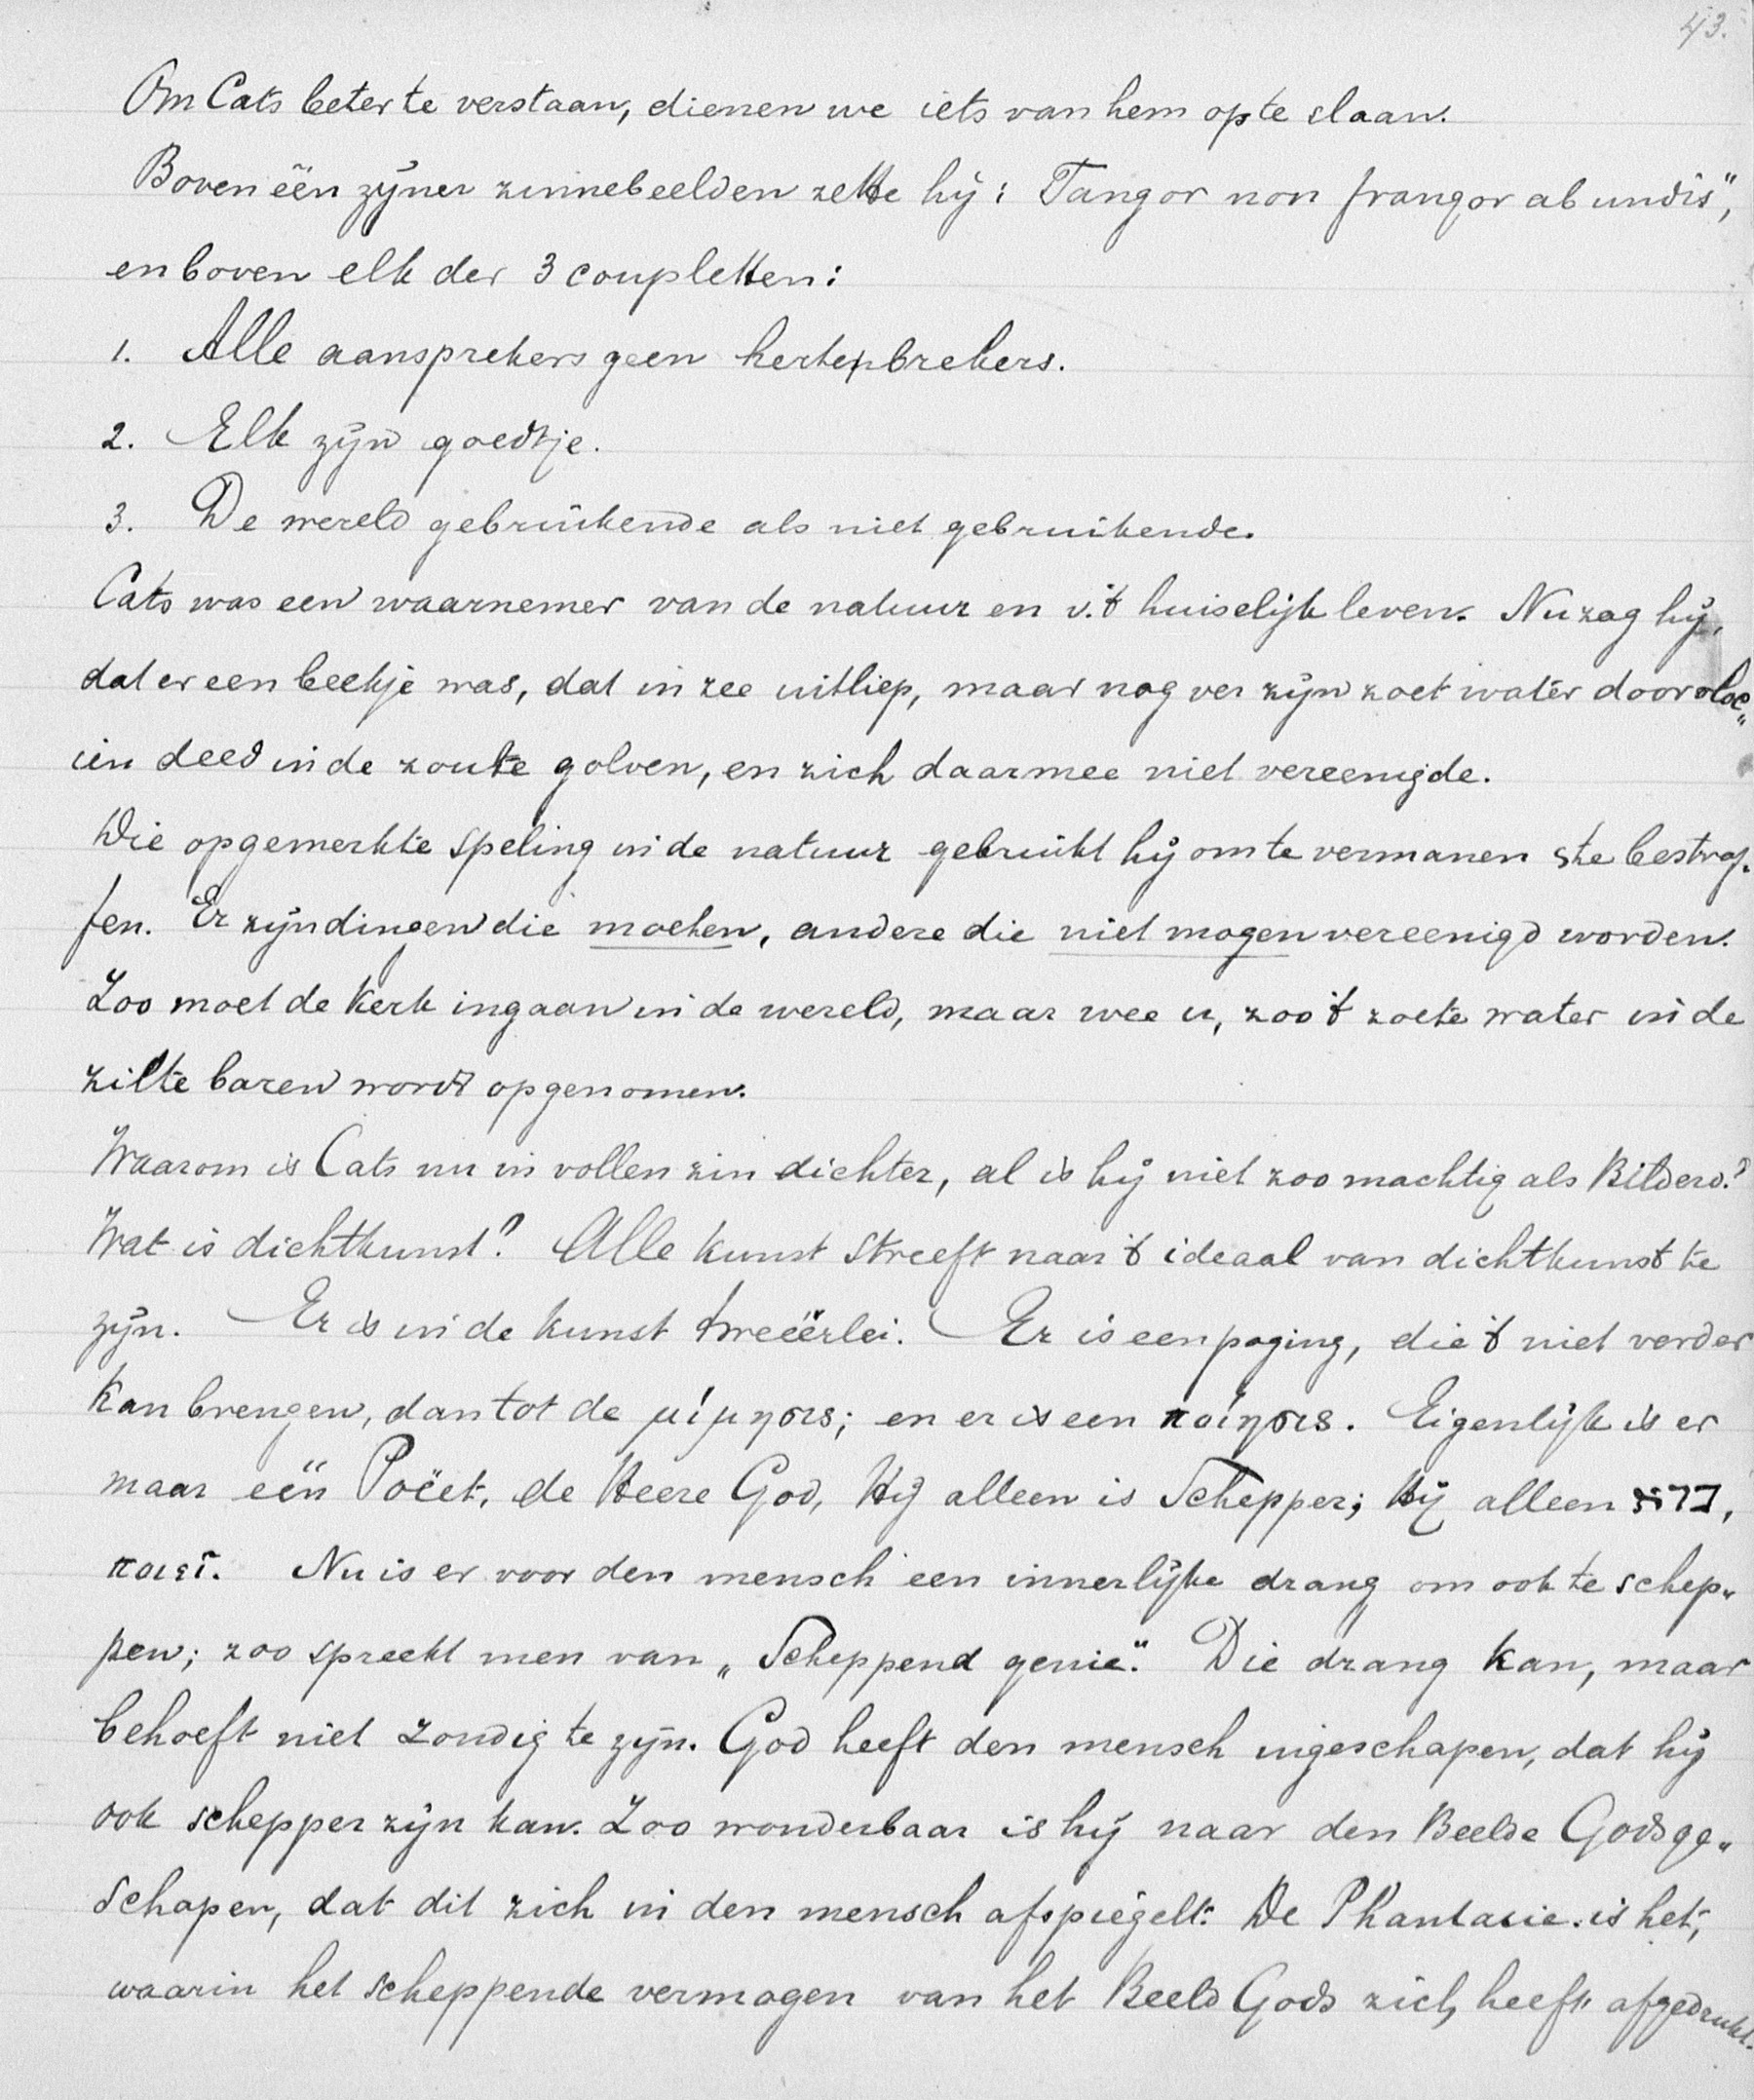 43.
Om Cats beter te verstaan, dienen we iets van hem op te slaan.
Boven één zijner zinnebeelden zette hij: Tangor non frangor ab undis",
en boven elk der 3 coupletten:
1. Alle aansprekers geen hertenbrekers.
2. Elk zijn goedtje.
3. De wereld gebruikende als niet gebruikende.
Cats was een waarnemer van de natuur en v.'t huiselijk leven. Nu zag hij,
dat er een beekje was, dat in zee uitliep, maar nog ver zijn zoet water doorvloe„
ien deed in de zoute golven, en zich daarmee niet vereenigde.
Die opgemerkte speling in de natuur gebruikt hij om te vermanen & te bestraf-
fen. Er zijn dingen die moeten, andere die niet mogen vereenigd worden.
Zoo moet de Kerk ingaan in de wereld, maar wee u, zoo 't zoete water in de
zilte baren wordt opgenomen.
Waarom is Cats nu in vollen zin dichter, al is hij niet zoo machtig als Bilderd.?
Wat is dichtkunst? Alle kunst streeft naar 't ideaal van dichtkunst te
zijn. Er is in de kunst tweeërlei. Er is een poging, die 't niet verder
kan brengen, dan tot de μίμησις; en er is een ποίησις. Eigenlijk is er
maar één Poëet, de Heere God, Hij alleen is Schepper; Hij alleen ברא,
ποιεῖ. Nu is er voor den mensch een innerlijke drang om ook te schep„
pen; zoo spreekt men van „Scheppend genie". Die drang kan, maar
behoeft niet zondig te zijn. God heeft den mensch ingeschapen, dat hij
ook schepper zijn kan. Zoo wonderbaar is hij naar den Beelde Gods ge„
schapen, dat dit zich in den mensch afspiegelt. De Phantasie is het,
waarin het scheppende vermogen van het Beeld Gods zich heeft afgedrukt.